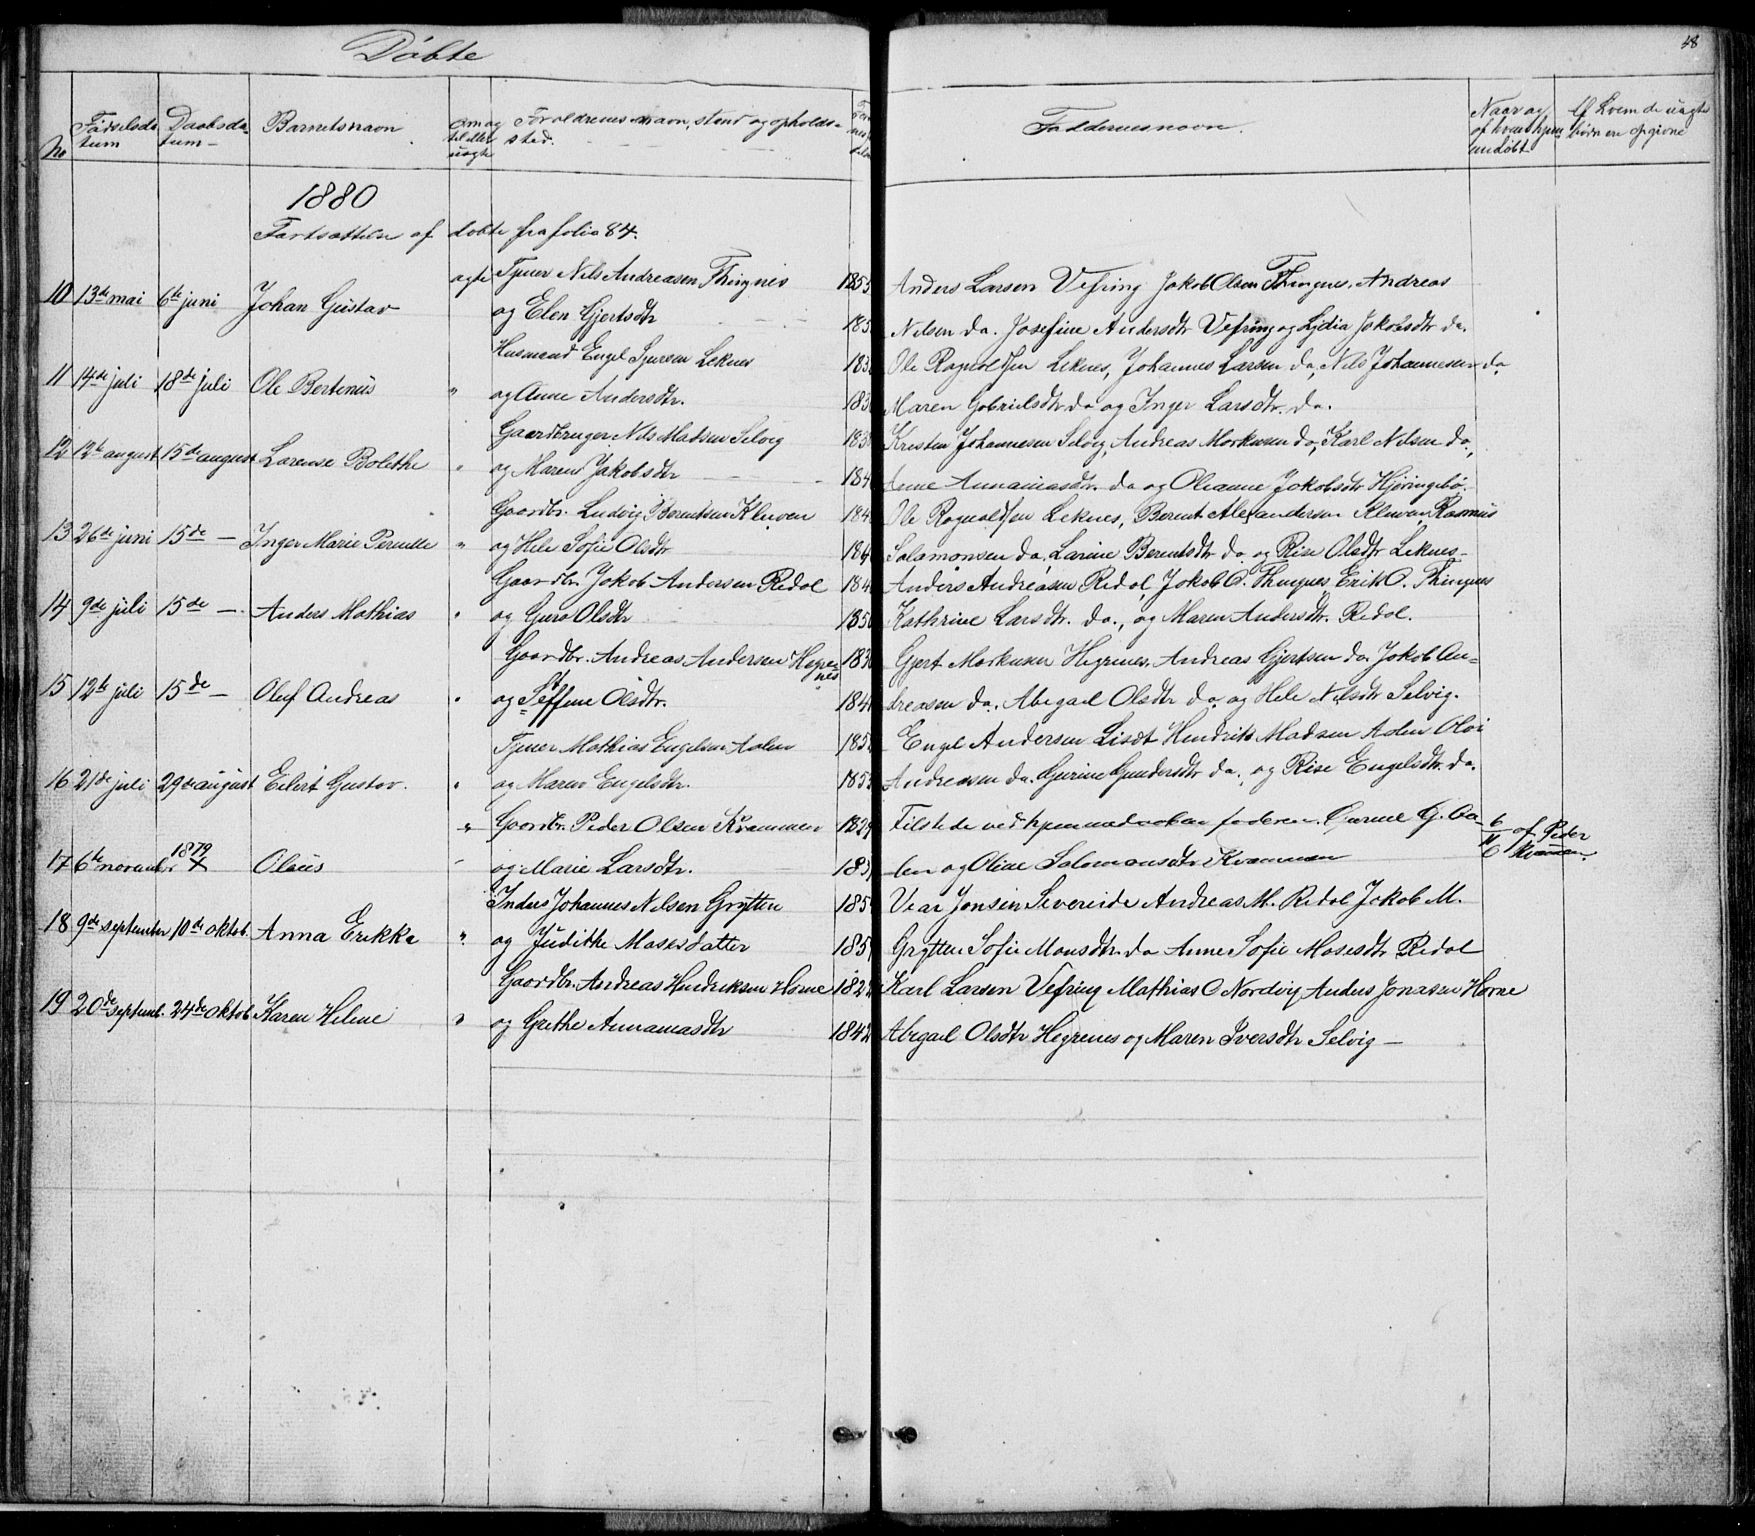 Döbte
48
No
Födselsda-
tum
Daabsda-
tum
Barnetsnavn
om æg
til eller
uægte
Foraldrenes navn, stand og opholds-
sted.
Faddernes navn.
Naar og
af hvem hjem-
medöbt
Af hvem de uægte
börn er opgivne
1880
Fortsættelse af döbte fra folio 84.
10 13de mai 6te juni Johan Gustav ægte Tjener Nils Andreasen Thingnes 1855 Anders Larsen Vefring Jakob Olsen Thingnes, Andreas
og Elen Gjertsdtr 185 Nilsen do. Josefine Andersdtr Vefring og Lydia Jakobsdtr do.
11 14de juli 18de juli Ole Bertinus " Husmand Engel Sjursen Leknes 183 Ole Ragnoldsen Leknes, Johannes Larsen do, Nils Johannesen do
og Anne Andersdtr. 183 Maren Gabrielsdtr do og Inger Larsdtr. do.
12 12te august 15de august Larense Bolethe " Gaardbruger Nils Madsen Selvig 183 Kristen Johannesen Selvig, Andreas Markusen do, Karl Nilsen do,
og Maren Jakobsdtr 184 Anne Annaniasdtr. do og Oleanne Jakobsdtr Hjöringbö.
13 26de juni 15de — Inger Marie Pernille " Gaardbr. Ludvig Berentsen Kleiven 184 Ole Ragnoldsen Leknes, Berent Alexandersen Kleiven, Rasmus
og Hele Sofie Olsdtr 184 Salamonsen do, Larine Berentsdtr do og Rise Olsdtr Leknes-
14 9de juli 15de — Anders Mathias " Gaardbr. Jakob Andersen Redal 184 Anders Andreasen Redal Jakob O. Thingnes Erik O. Thingnes
og Guro Olsdtr 1850 Kathrine Larsdtr. do., og Maren Andersdtr. Redal.
15 12te juli 15de — Oluf Andreas " Gaardbr. Andreas Andersen Hegre-
nes 183 Gjert Markusen Hegrenes, Andreas Gjertsen do. Jakob An-
og Seffine Olsdtr. 184 dreasen do. Abigael Olsdtr do. og Hele Nilsdtr Selvig.
16 21de juli 29de august Eilert Gustav. " Tjener Mathias Engelsen Aalen 185 Engel Andersen Liset Hendrik Madsen Aalen
og Maren Engelsdtr. 1853 Andreasen do. Gurine Gundersdtr do. og Rise Engelsdtr. do.
17 6te november 1879 X Olaus " Gaardbr. Peder Olsen Kvammen 1829 Tilstede ved hjemmedaaben faderen. Gurine G. Aa-
og Marie Larsdtr. 183 len og Oline Salomonsdtr Kvammen
6/11 af Peder
O Kvammen.
18 9de september 10de oktob. Anna Erikka " Inders Johannes Nilsen Grytten 185 Ivar Jonsen Severeide Andreas M. Redal Jakob M.
og Judithe Mosesdatter 185 Grytten Sofie Monsdtr. do Anne Sofie Mosesdtr Redal
19 20de septemb. 24de oktob Karen Helene " Gaardbr. Andreas Hendriksen Horne 182 Karl Larsen Vefring Mathias O Nordvig Anders Jonassen Horne
og Grethe Annaniasdtr 1842 Abigael Olsdtr Hegrenes og Maren Iversdtr Selvig —